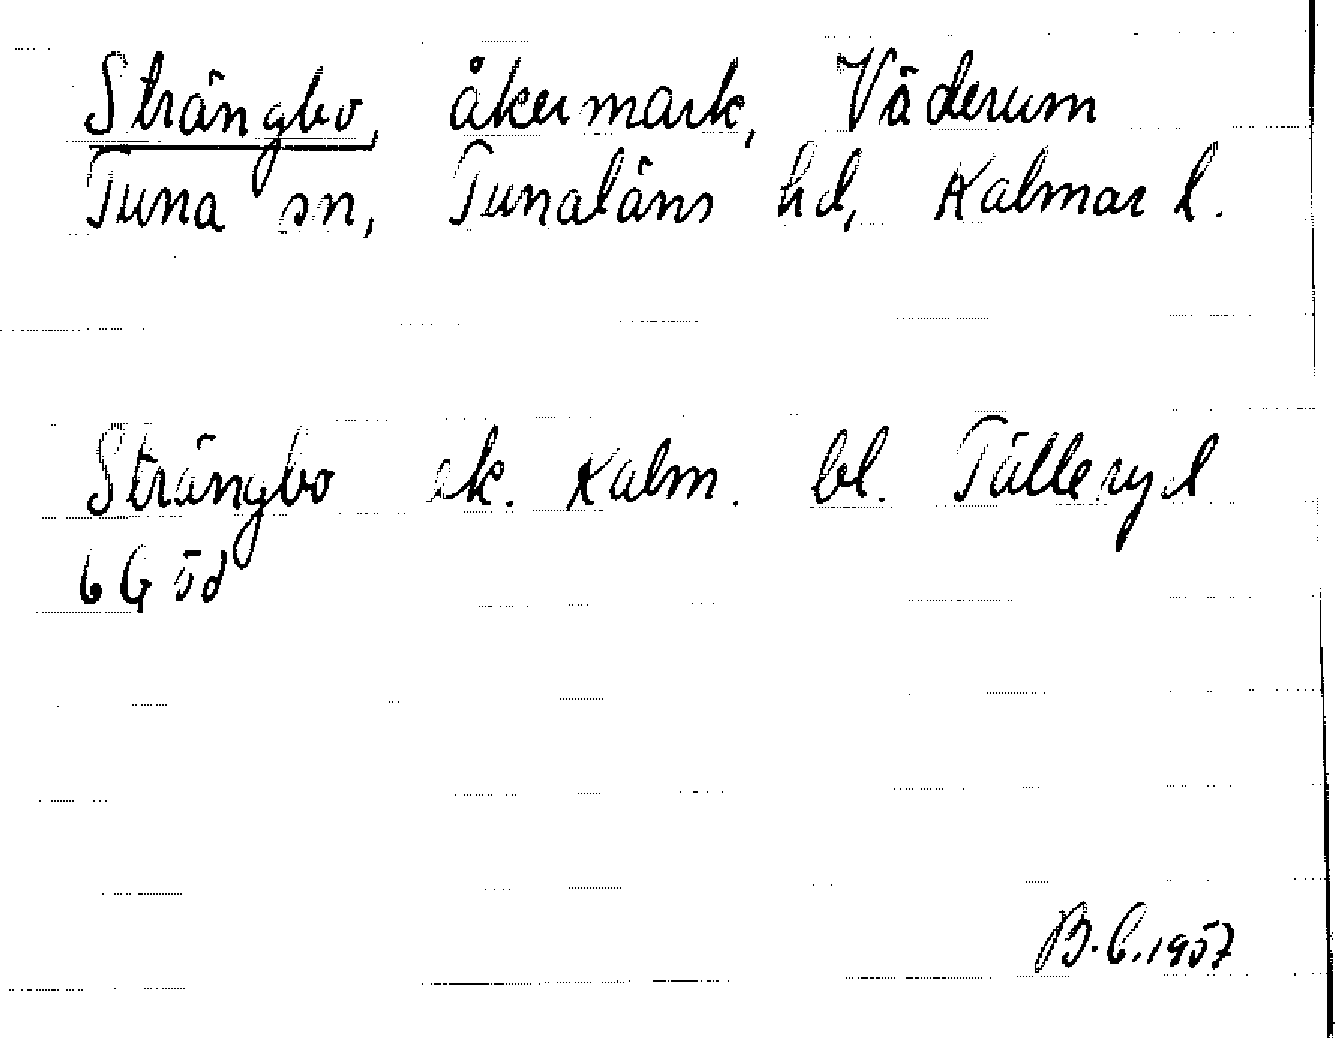 Strängbo, åkermark, Väderum
Tuna sn, Tunaläns hd, Kalmar l.
Strängbo ek. Kalm. bl. Tälleryd
6 G öd
B.C. 1957